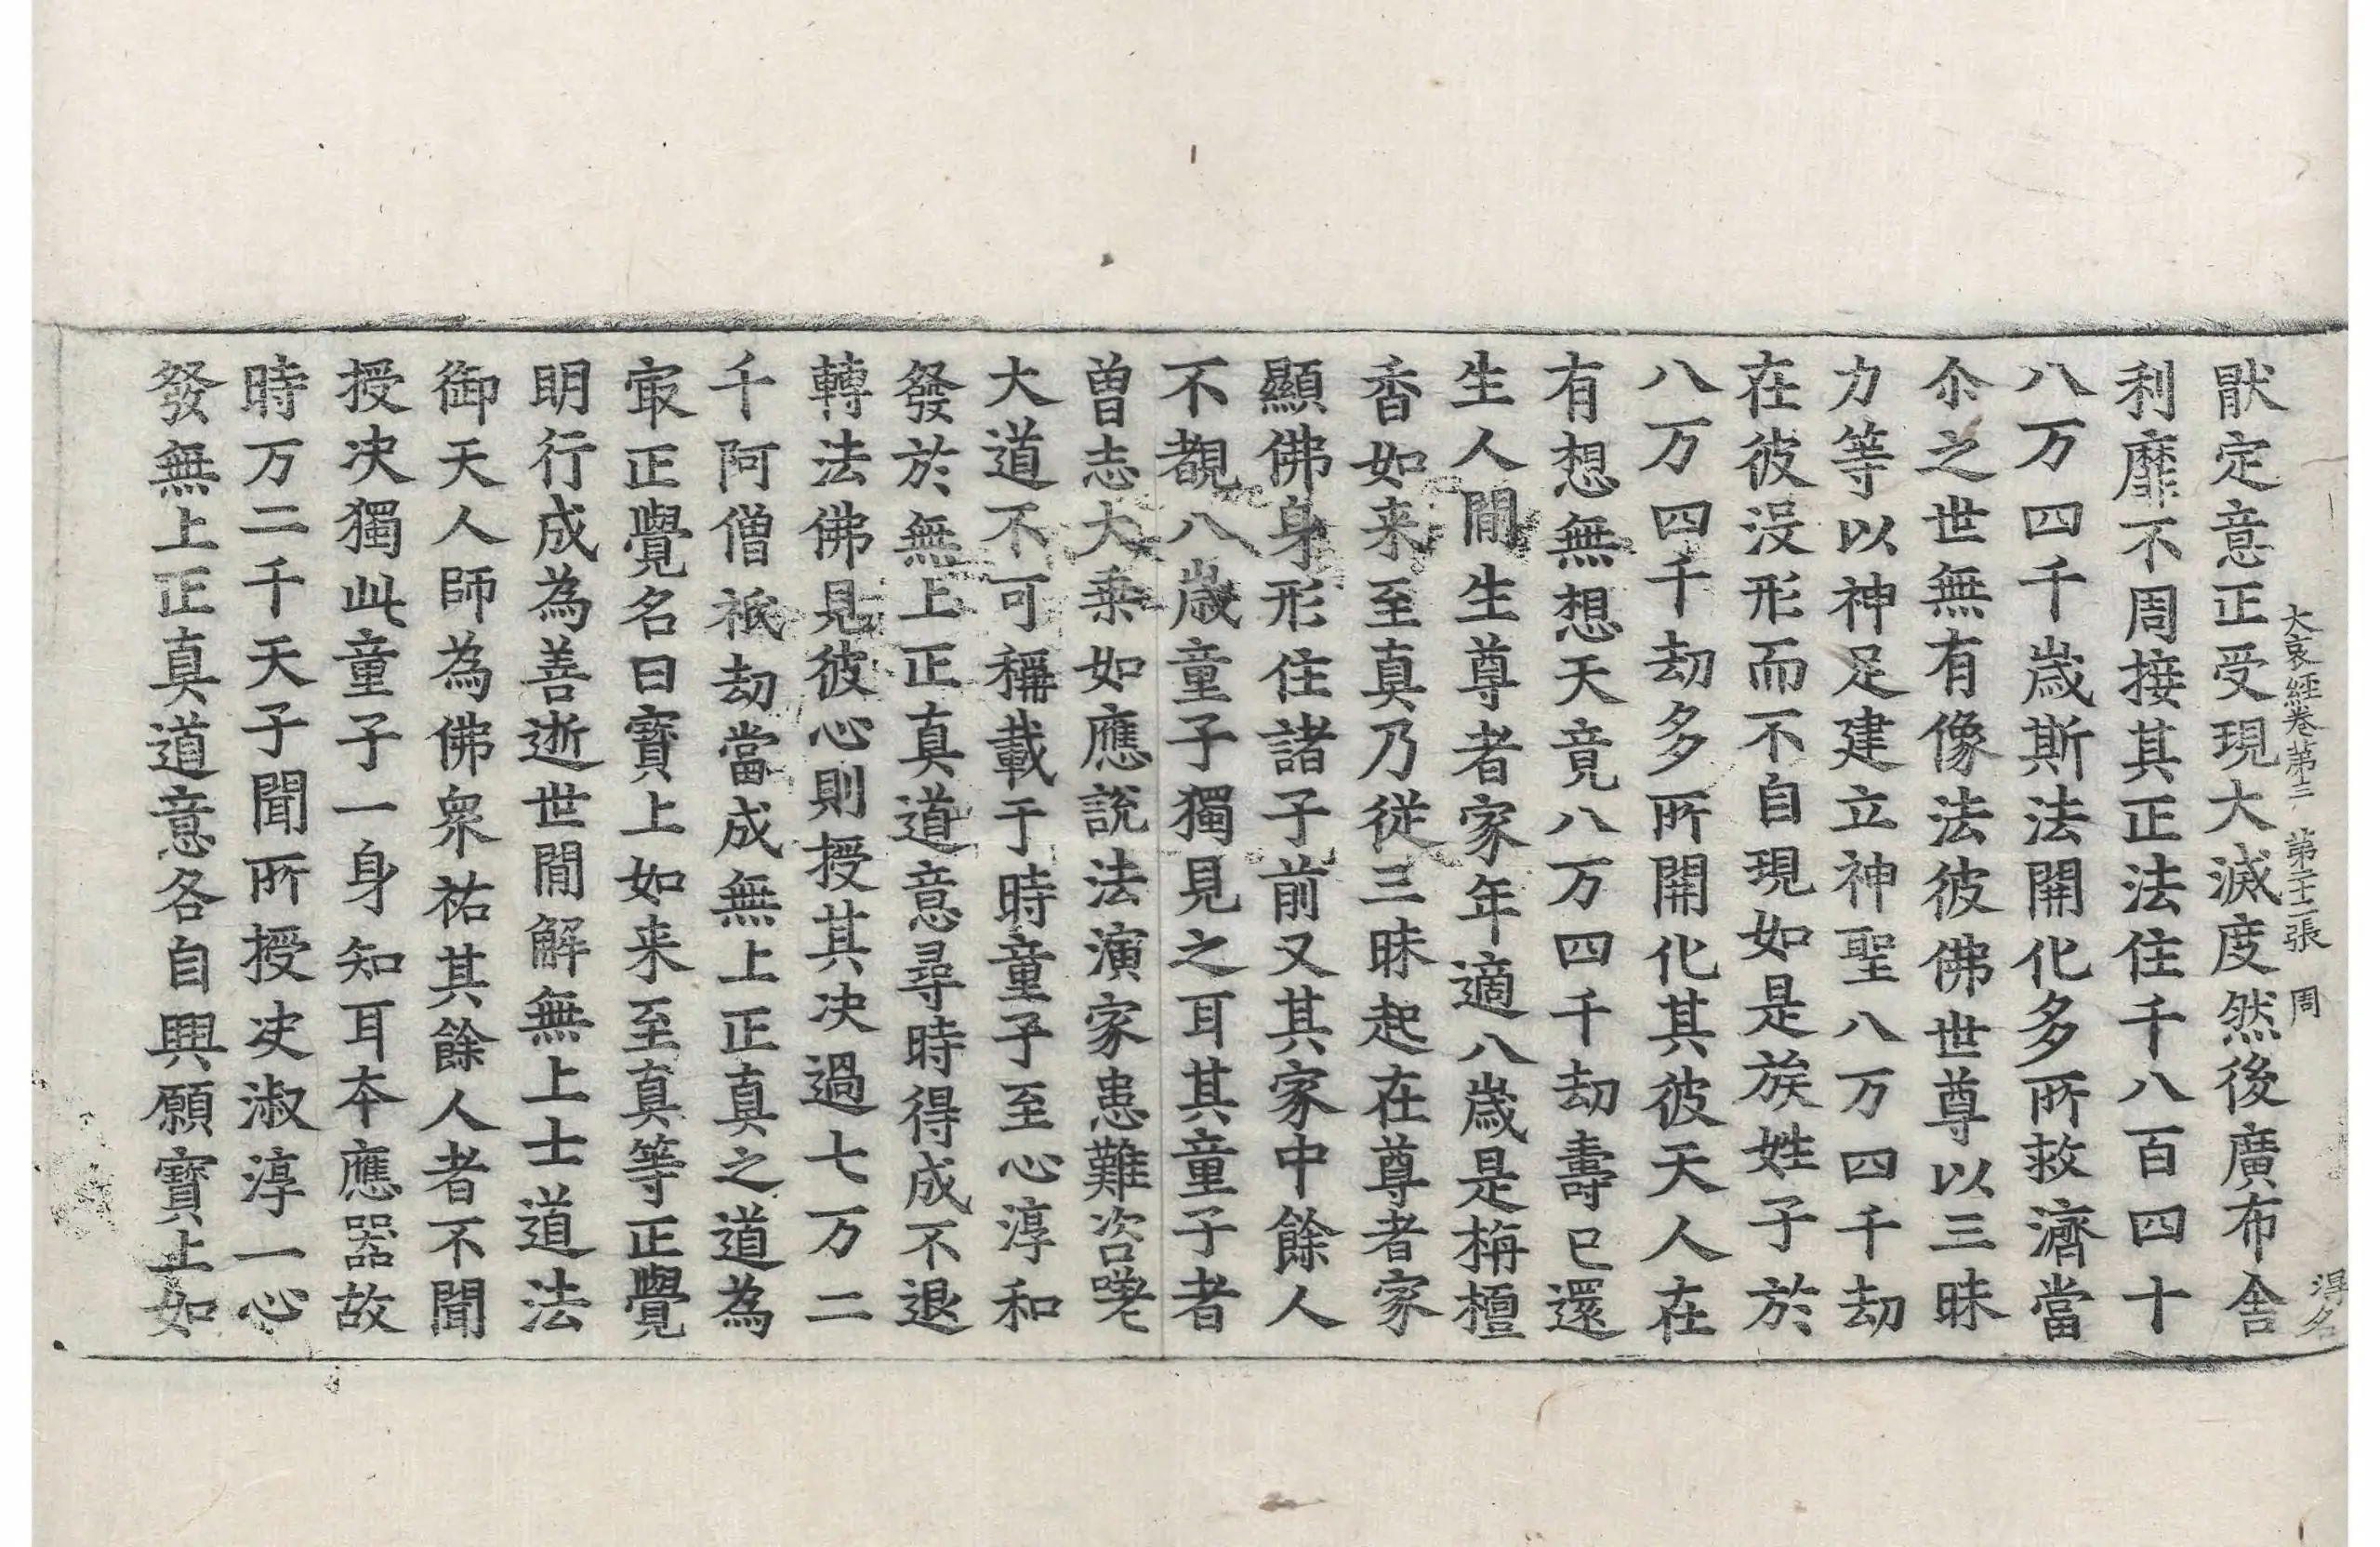 大哀経卷苐三 苐二十二張 周
猒定意正受現大滅度然後廣布舎
利靡不周接其正法住千八百四十
八万四千歳斯法開化多所救濟當
尒之世無有像法彼佛世尊以三昧
力等以神足建立神聖八万四千劫
在彼没形而不自現如是族姓子於
八万四千劫多所開化其彼天人在
有想無想天竟八万四千劫壽已還
生人間生尊者家年適八歳是栴檀
香如来至真乃従三昧起在尊者家
顯佛身形住諸子前又其家中餘人
不覩八歳童子獨見之耳其童子者
曽志大乗如應說法演家患難咨嗟
大道不可稱載于時童子至心淳和
發於無上正真道意尋時得成不退
轉法佛見彼心則授其决過七万二
千阿僧祇劫當成無上正真之道為
㝡正覺名曰寶上如来至真等正覺
明行成為善逝世間解無上士道法
御天人師為佛衆祐其餘人者不聞
授决獨此童子一身知耳本應器故
時万二千天子聞所授决淑淳一心
發無上正真道意各自興願寶上如